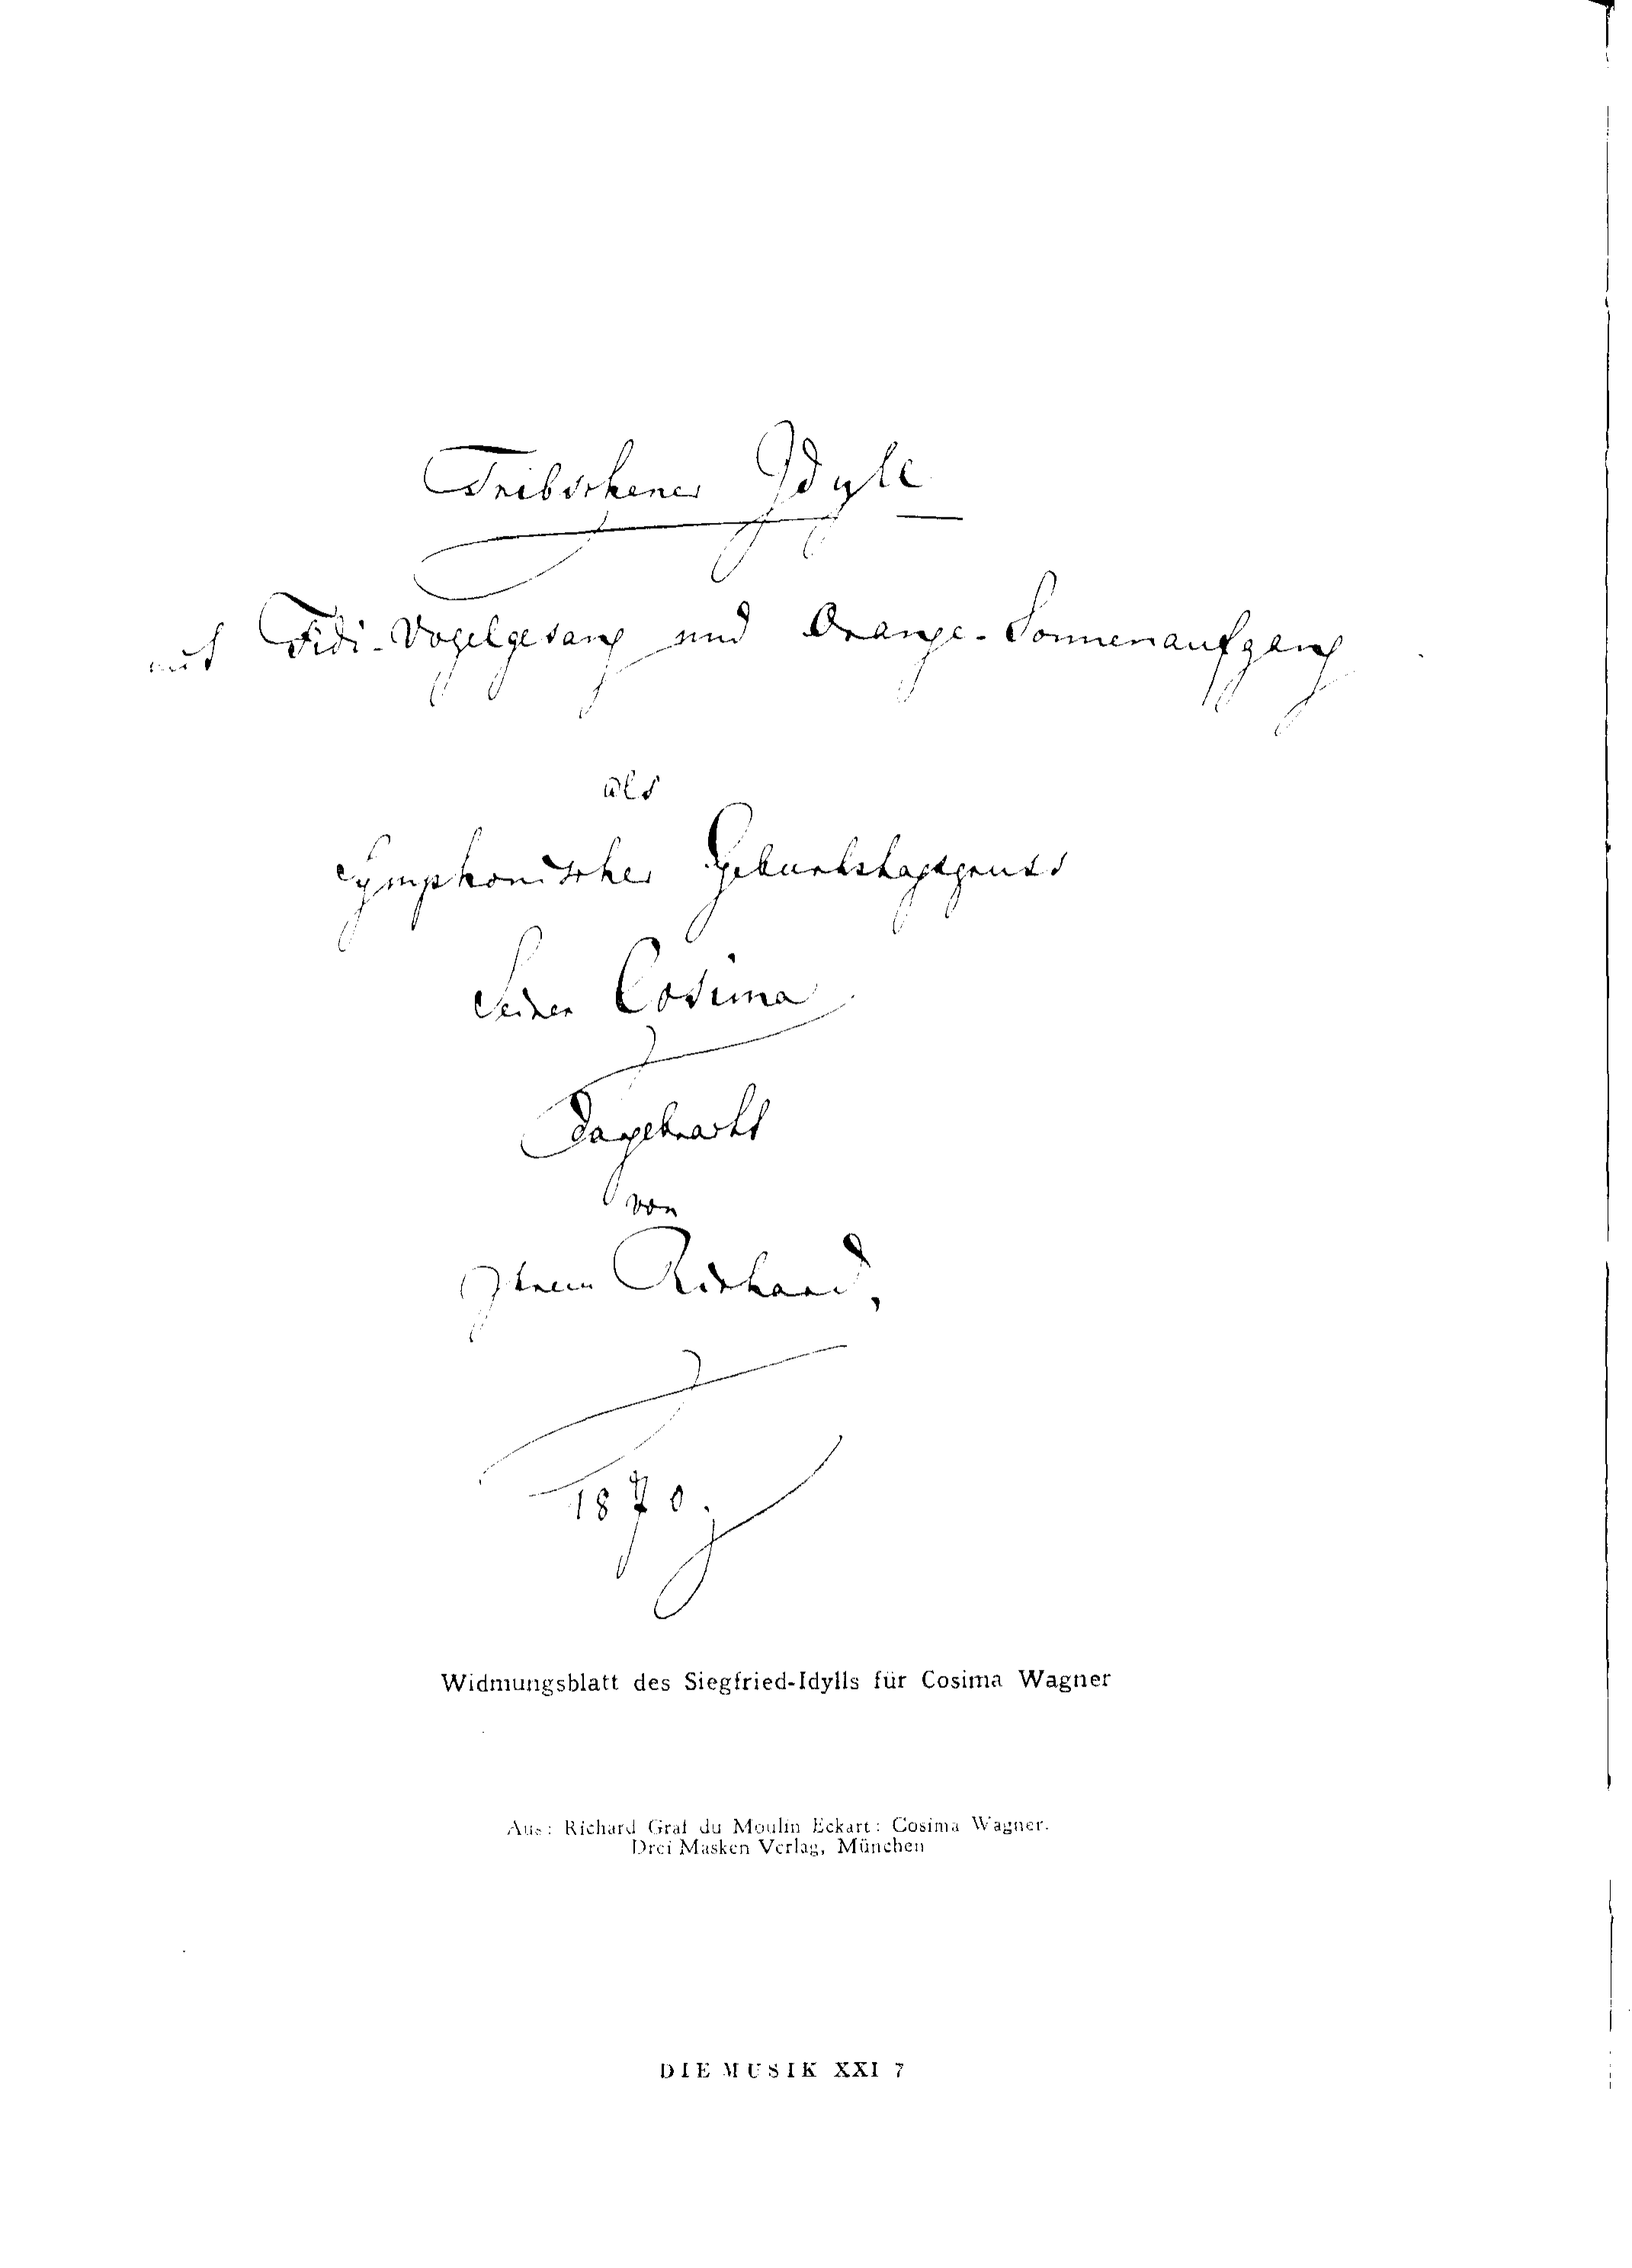 Tribschener Idyll
mit Fidi-Vogelgesang und Orange-Sonnenaufgang
als
Symphonischer Geburtstagsgruss
Seiner Cosima
dargebracht
von
Ihrem Richard,
1870.
Widmungsblatt des Siegfried-Idylls für Cosima Wagner
Aus: Richard Graf du Moulin Eckart: Cosima Wagner.
Drei Masken Verlag, München
DIE MUSIK XXI 7